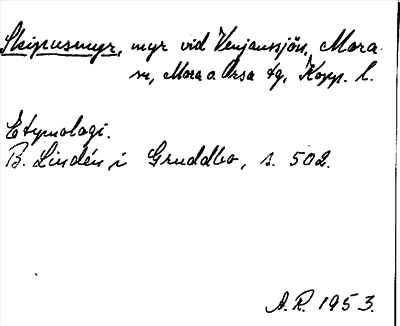 Skipusmyr, myr vid Venjanssjön, Mora
sn, Mora o. Orsa tg, Kopp. l.
Etymologi.
B. Lindén i Gruddbo, s. 502.
A.R. 1953.